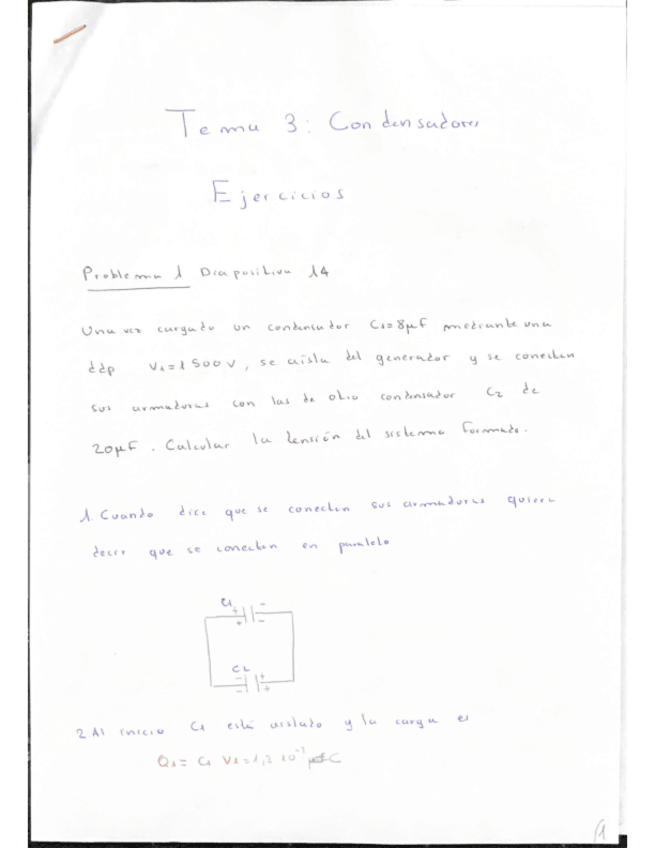 Tema 3: Condensadores
Ejercicios
Problema 1 Diapositiva 14
Una vez cargado un condensador C1=8μF mediante una
ddp V1=1500V, se aísla del generador y se conectan
sus armaduras con las de otro condensador C2 de
20μF. Calcular la tensión del sistema formado.
1. Cuando dice que se conectan sus armaduras quiere
decir que se conectan en paralelo
C1
+ -
+ -
C2
- +
- +
2. Al inicio C1 está aislado y la carga es
Q1 = C1 V1 = 1,2 10⁻² C
1